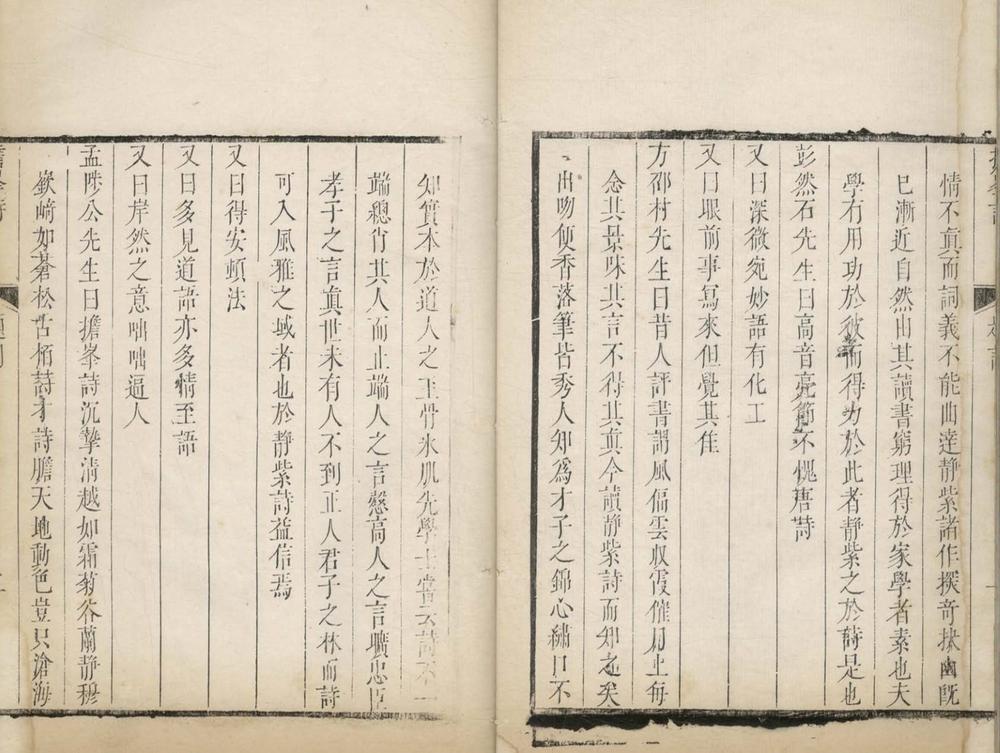 情不眞而詞義不能曲達靜紫諸作探奇抉幽旣
已漸近自然由其讀書窮理得於家學者素也夫
學有用功於彼而得力於此者靜紫之於詩是也
彭然石先生曰高音亮節不愧唐詩
又曰深微宛妙語有化工
又曰眼前事寫來但覺其佳
方邵村先生曰昔人評書謂風偏雲収霞催月上每
念其景味其言不得其眞今讀靜紫詩而知之矣
出吻便香落筆皆秀人知爲才子之錦心繡口不
知實本於道人之玉骨氷肌先學士嘗云詩不一
端總肖其人而止端人之言慤高人之言曠忠臣
孝子之言眞世未有人不到正人君子之林而詩
可入風雅之域者也於靜紫詩益信焉
又曰得安頓法
又曰多見道語亦多情至語
又曰岸然之意咄咄逼人
孟陟公先生曰擔峯詩沉摯淸越如霜菊谷蘭靜穆
嶔﨑如蒼松古栢詩才詩膽天地動色豈只滄海